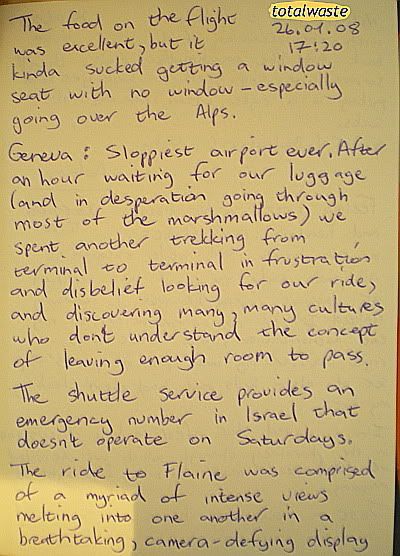 totalwaste
26.01.08
17:20
The food on the flight
was excellent, but it
kinda sucked getting a window
seat with no window - especially
going over the Alps.
Geneva: Sloppiest airport ever. After
an hour waiting for our luggage
(and in desperation going through
most of the marshmallows) we
spent another trekking from
terminal to terminal in frustration
and disbelief looking for our ride,
and discovering many, many cultures
who don't understand the concept
of leaving enough room to pass.
The shuttle service provides an
emergency number in Israel that
doesn't operate on Saturdays.
The ride to Flaine was comprised
of a myriad of intense views
melting into one another in a
breathtaking, camera-defying display